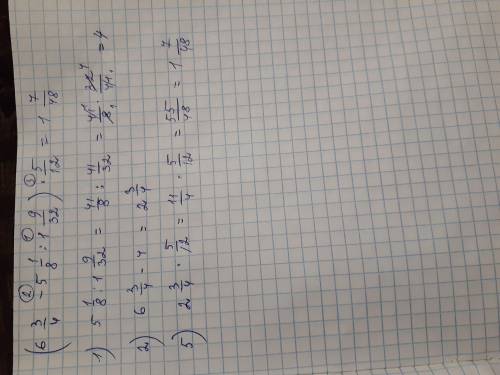 (6 3/4 - 5 1/8 : 1 9/32) · 5/12 = 1 7/48
1) 5 1/8 : 1 9/32 = 41/8 : 41/32 = 41/8 · 32/41 = 4
2) 6 3/4 - 4 = 2 3/4
5) 2 3/4 · 5/12 = 11/4 · 5/12 = 55/48 = 1 7/48